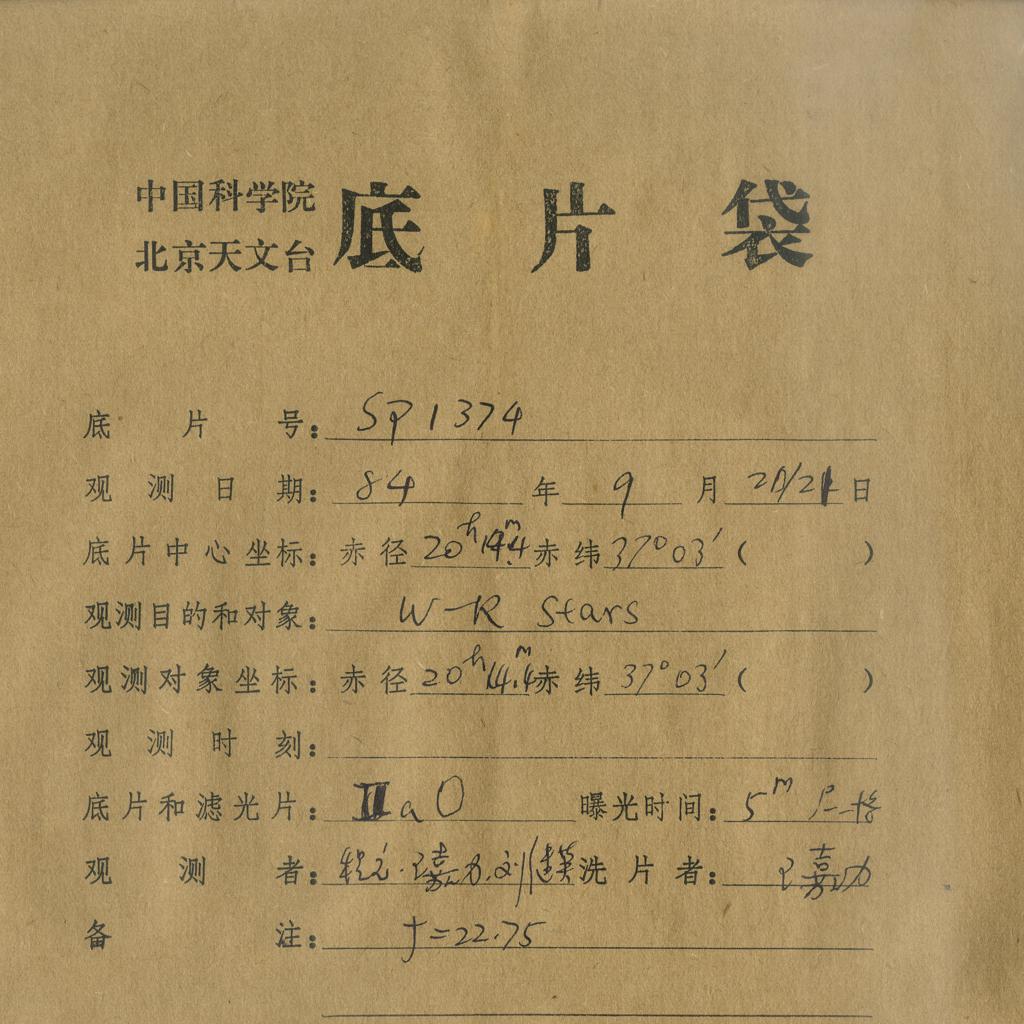 中国科学院
北京天文台
底片袋
底片号: SP1374
观测日期: 84年 9月 21/21日
底片中心坐标: 赤径 20h14m.4 赤纬 37°03′ ( )
观测目的和对象: W-R Stars
观测对象坐标: 赤径 20h14m.4 赤纬 37°03′ ( )
观测时刻:
底片和滤光片: IIaO 曝光时间: 5m
观测者: 洗片者:
备注: f=22.75